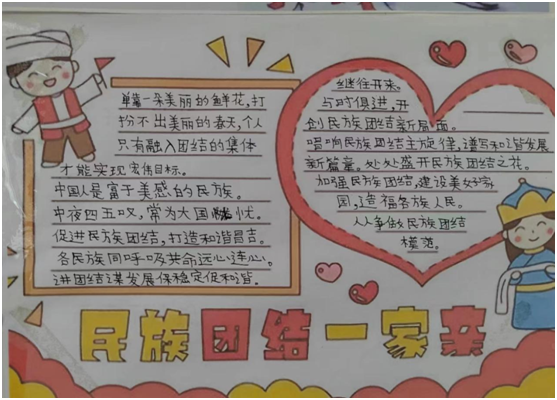 单靠一朵美丽的鲜花,打
扮不出美丽的春天,个人
只有融入团结的集体
才能实现宏伟目标。
中国人是富于美感的民族。
中夜四五叹,常为大国忧。
促进民族团结,打造和谐昌吉。
各民族同呼吸共命运心连心。
进团结谋发展保稳定促和谐.
继往开来,
与时俱进,开
创民族团结新局面。
唱响民族团结主旋律,谱写和谐发展
新篇章。处处盛开民族团结之花。
加强民族团结,建设美好家
园,造福各族人民。
人人争做民族团结
模范。
民族团结一家亲